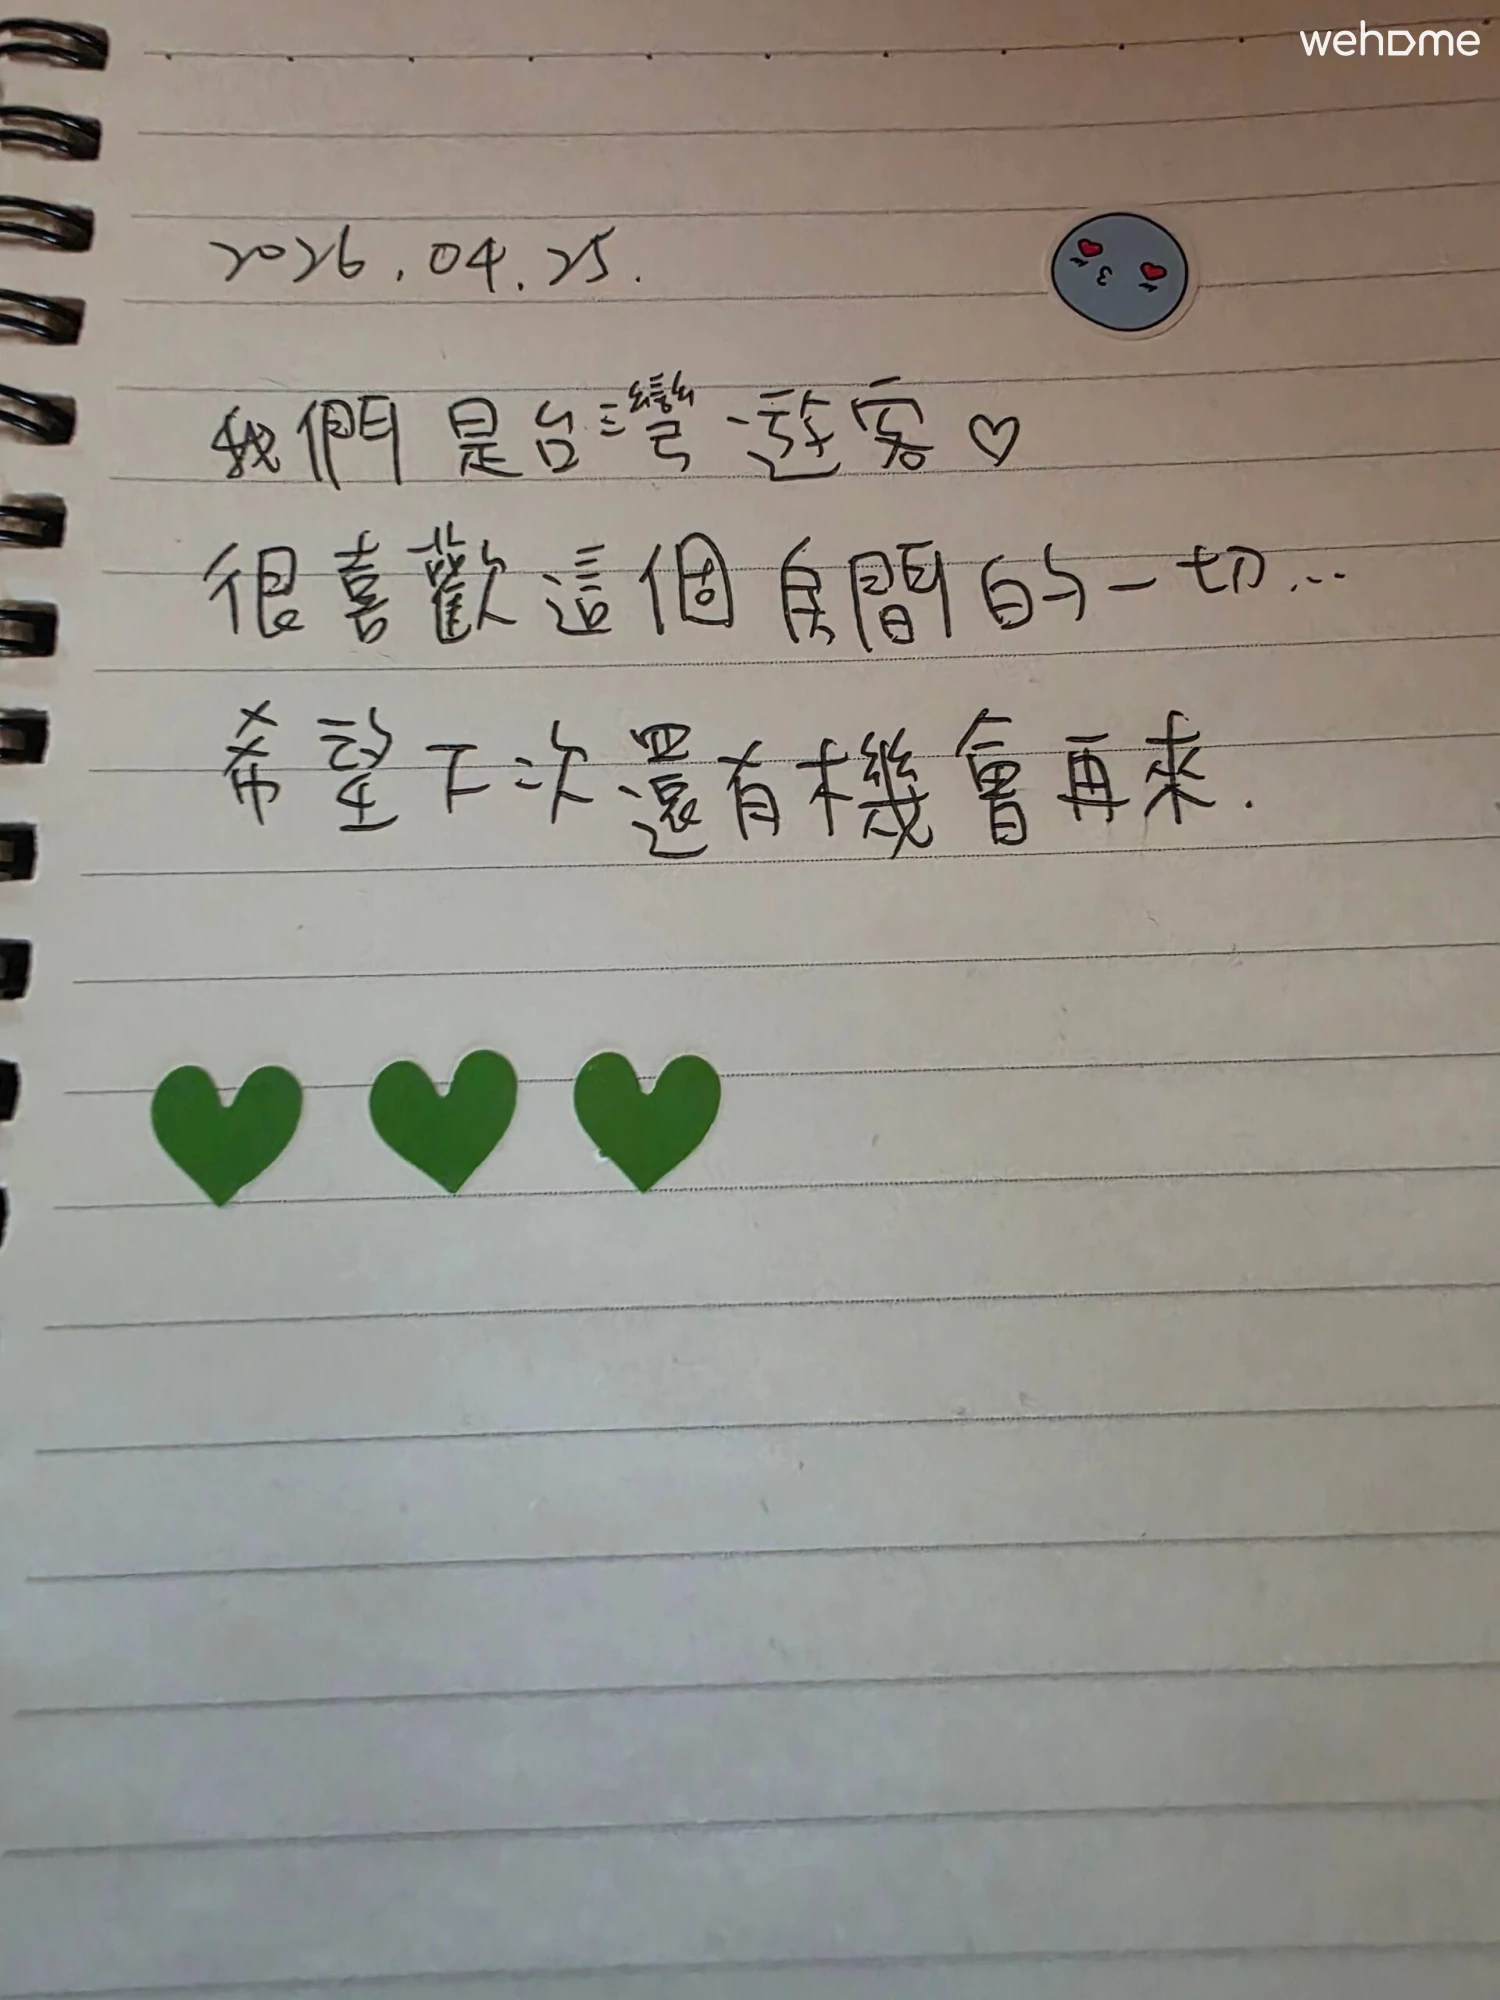 wehome
2026.04.25.
我們是台灣遊客♡
很喜歡這個房間的一切...
希望下次還有機會再來.